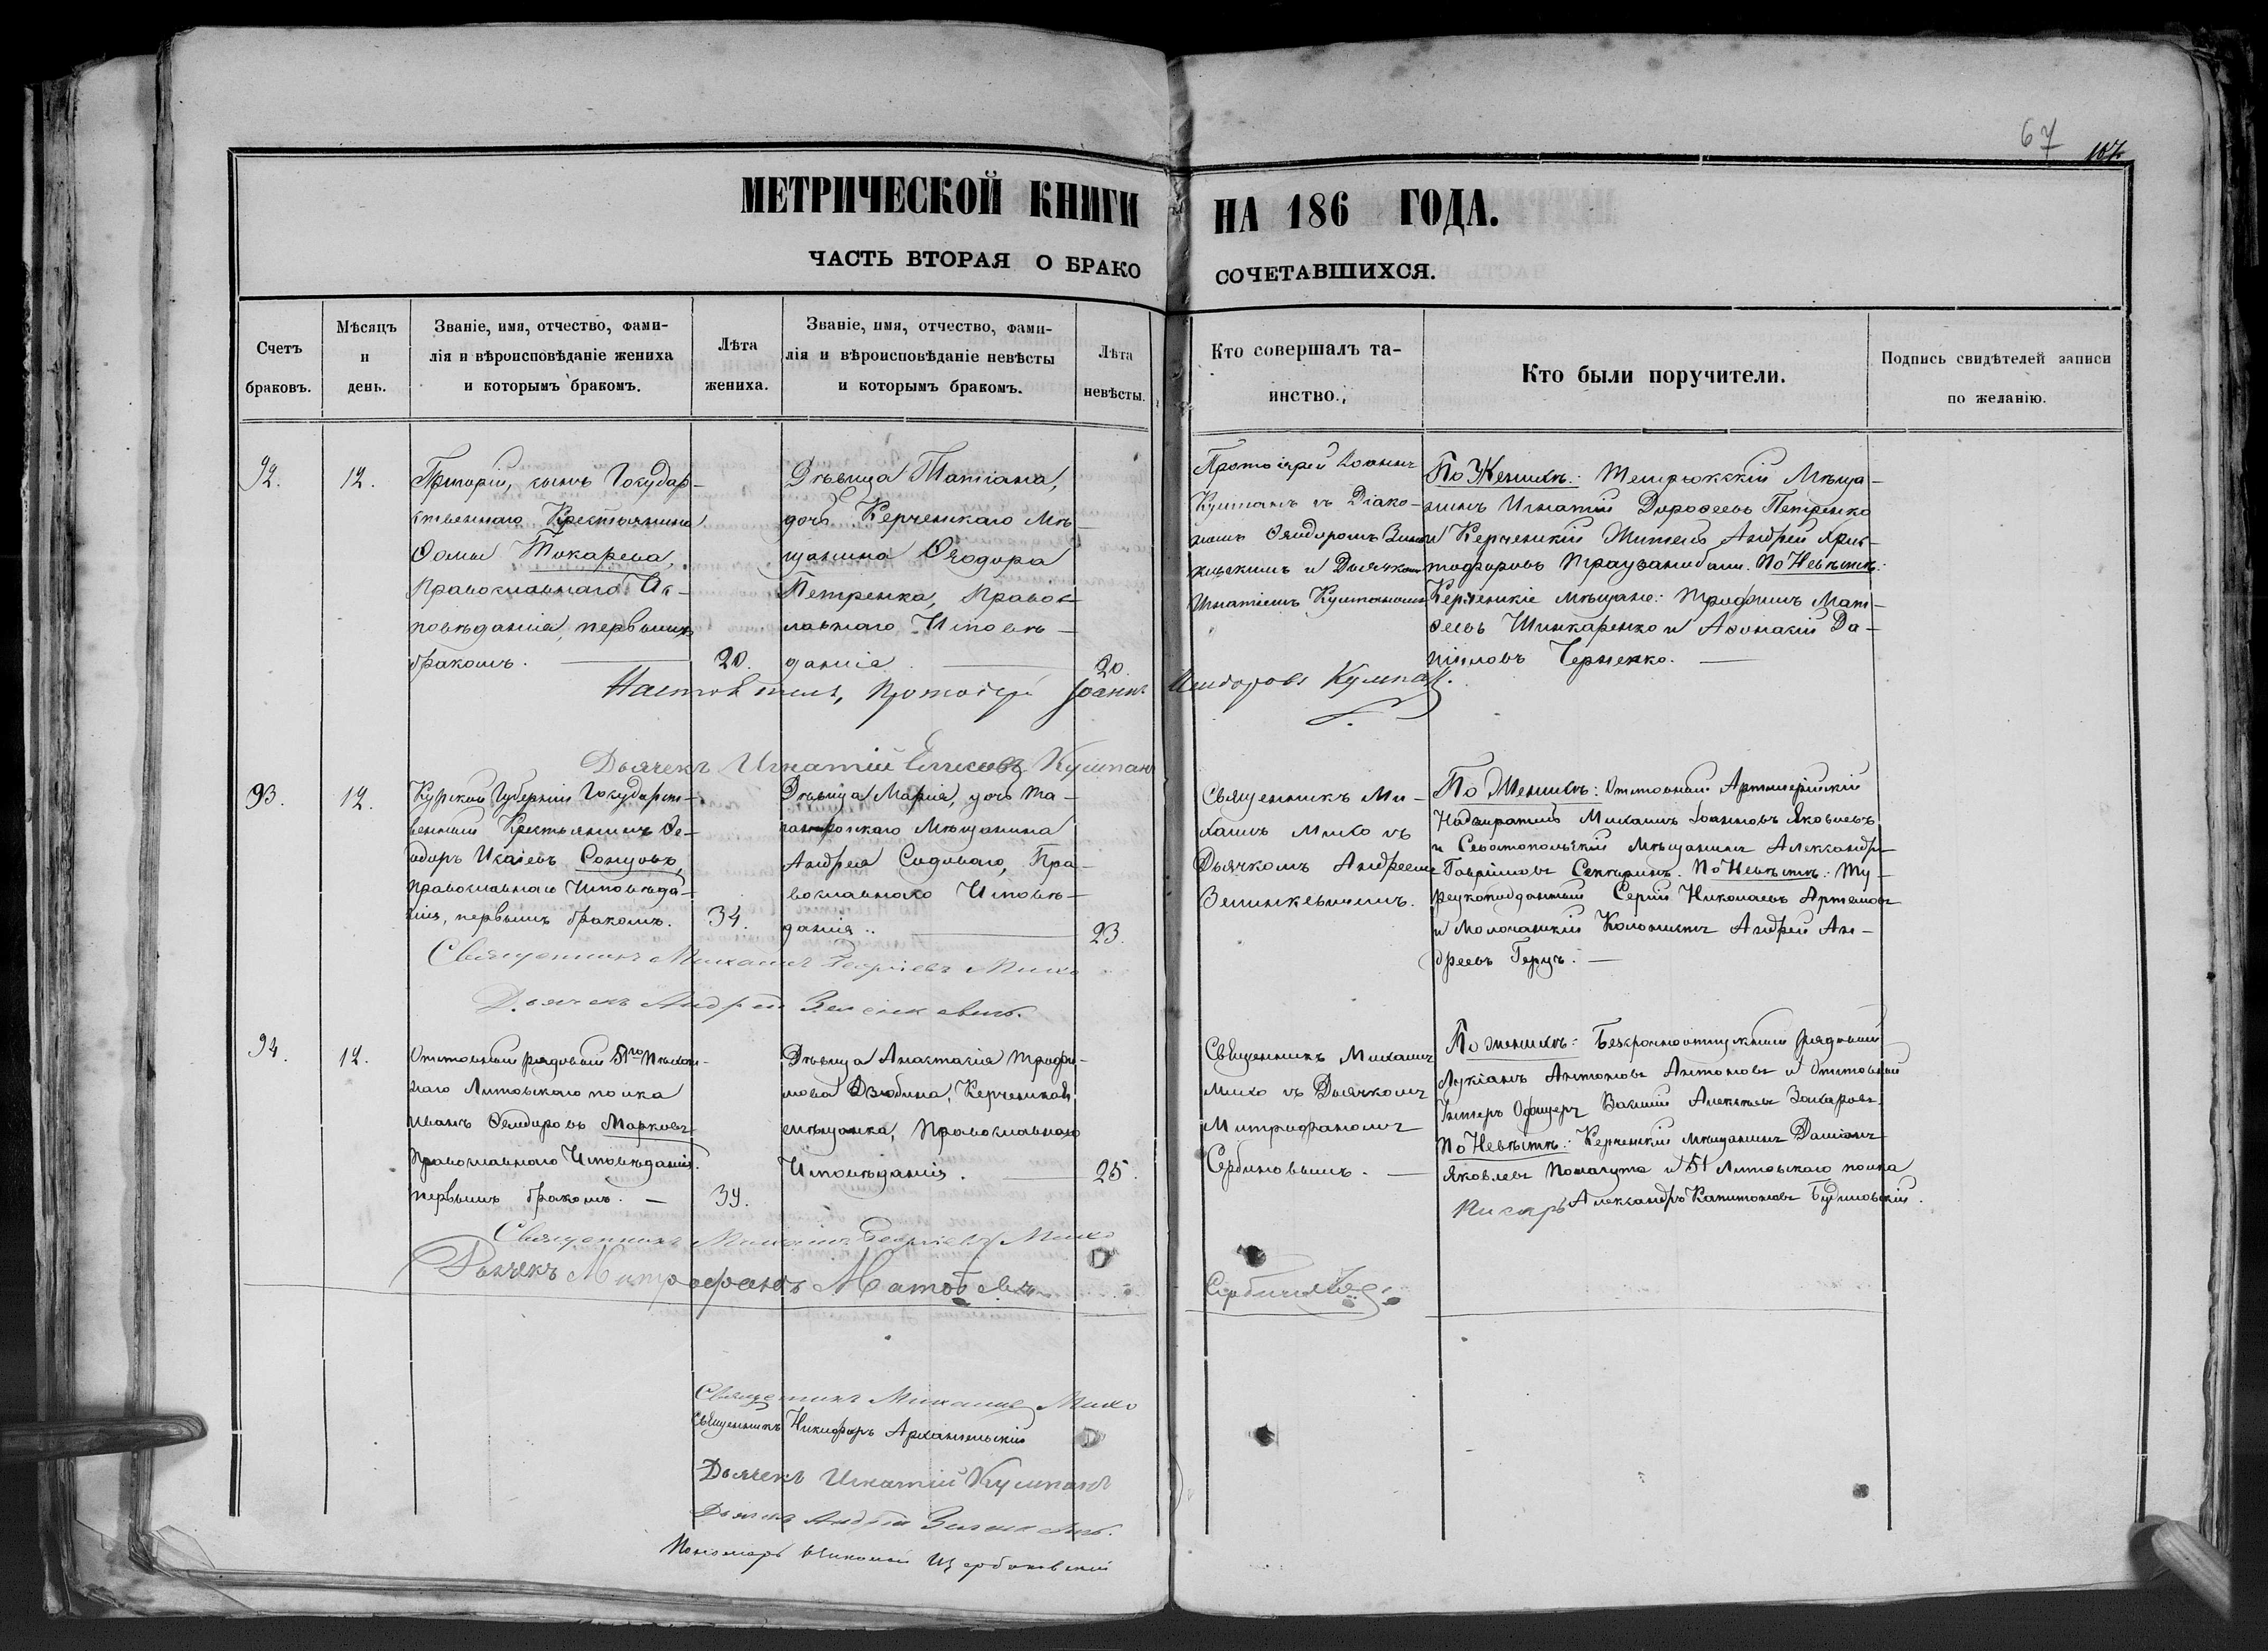 67
107
МЕТРИЧЕСКОЙ КНИГИ НА 186 ГОДА.
ЧАСТЬ ВТОРАЯ О БРАКОСОЧЕТАВШИХСЯ.
Счетъ браковъ.
Мѣсяцъ и день.
Званіе, имя, отчество, фами-
лія и вѣроисповѣданіе жениха
и которымъ бракомъ.
Лѣта жениха.
Званіе, имя, отчество, фами-
лія и вѣроисповѣданіе невѣсты
и которымъ бракомъ.
Лѣта невѣсты.
Кто совершалъ та-
инство.
Кто были поручители.
Подпись свидѣтелей записи
по желанію.
92.
12.
Григорій, сынъ Государ-
ственнаго Крестьянина
Ѳомы Токарева,
Православнаго Ис-
повѣданія, первымъ
бракомъ.
20.
Дѣвица Татіана,
дочь Керченскаго Мѣ-
щанина Ѳеодора
Петренка, Правос-
лавнаго Исповѣ-
данія.
20.
Протоіерей Іоаннъ
Кумпанъ съ Діако-
номъ Ѳеодоромъ
и Дьячкомъ
Игнатіемъ Кумпаномъ
По Женихѣ: Темрюкскій Мѣща-
нинъ Игнатій Дороѳеевъ Петренко
и Керченскій Житель Андрей Хрис-
тофоровъ По Невѣстѣ:
Керченскіе мѣщане: Трофимъ Мат-
ѳеевъ Шинкаренко и Аѳонасій Да-
ниловъ Черненко.
Настоятель, Протоіерей Іоаннъ Исидоровъ Кумпан
Дьячекъ Игнатій Елисеевъ Кумпанъ
93.
12.
Курской Губерніи Государст-
венный Крестьянинъ Ѳе-
одоръ Исаіевъ
Православнаго Исповѣда-
нія, первымъ бракомъ.
34.
Дѣвица Марія, дочь Та-
ганрогскаго Мѣщанина
Андрея Садоваго, Пра-
вославнаго Исповѣ-
данія.
23.
Священникъ Ми-
хаилъ Михо съ
Дьячкомъ Андреемъ
Зелинкевичемъ.
По Женихѣ: Отставный Артилерійскій
Надзиратель Михаилъ Іоанновъ Яковлевъ
и Севастопольскій Мѣщанинъ Александръ
Гавріиловъ По Невѣстѣ: Ту-
рецкоподданный Сергій Николаевъ Артемовъ
и Молочанскій Колонистъ Андрей Ан-
дреевъ
Священникъ Михаилъ Георгіевъ Михо
Дьячекъ Андрей Зелинкевичъ.
94.
12.
Отставный рядовый 51го Пѣхот-
наго Литовскаго полка
Иванъ Ѳеодоровъ Марковъ
Православнаго Исповѣданія.
первымъ бракомъ.
39.
Дѣвица Анастасія Трофи-
мова Дзюбина, Керченская
мѣщанка, Православнаго
Исповѣданія.
25.
Священникъ Михаилъ
Михо съ Дьячкомъ
Митрофаномъ
Сербиновымъ.
По женихѣ: Безсрочноотпускный рядовый
Лукіанъ Антоновъ Антоновъ и Отставный
Унтеръ Офицеръ Василій Алексѣевъ Захаровъ.
По Невѣстѣ: Керченскій мѣщанинъ Даміанъ
Яковлевъ и 51 Литовскаго полка
Писарь Александръ Капитоновъ Будиловскій.
Священникъ Михаилъ Георгіевъ Михо
Дьячекъ Митрофанъ Матвѣевъ Сербиновъ.
Священникъ Михаилъ Михо
Священникъ Никифоръ Архангельскій
Дьячекъ Игнатій Кумпанъ
Дьячекъ Андрей Зелинкевичъ.
Пономарь Николай Щербаковскій